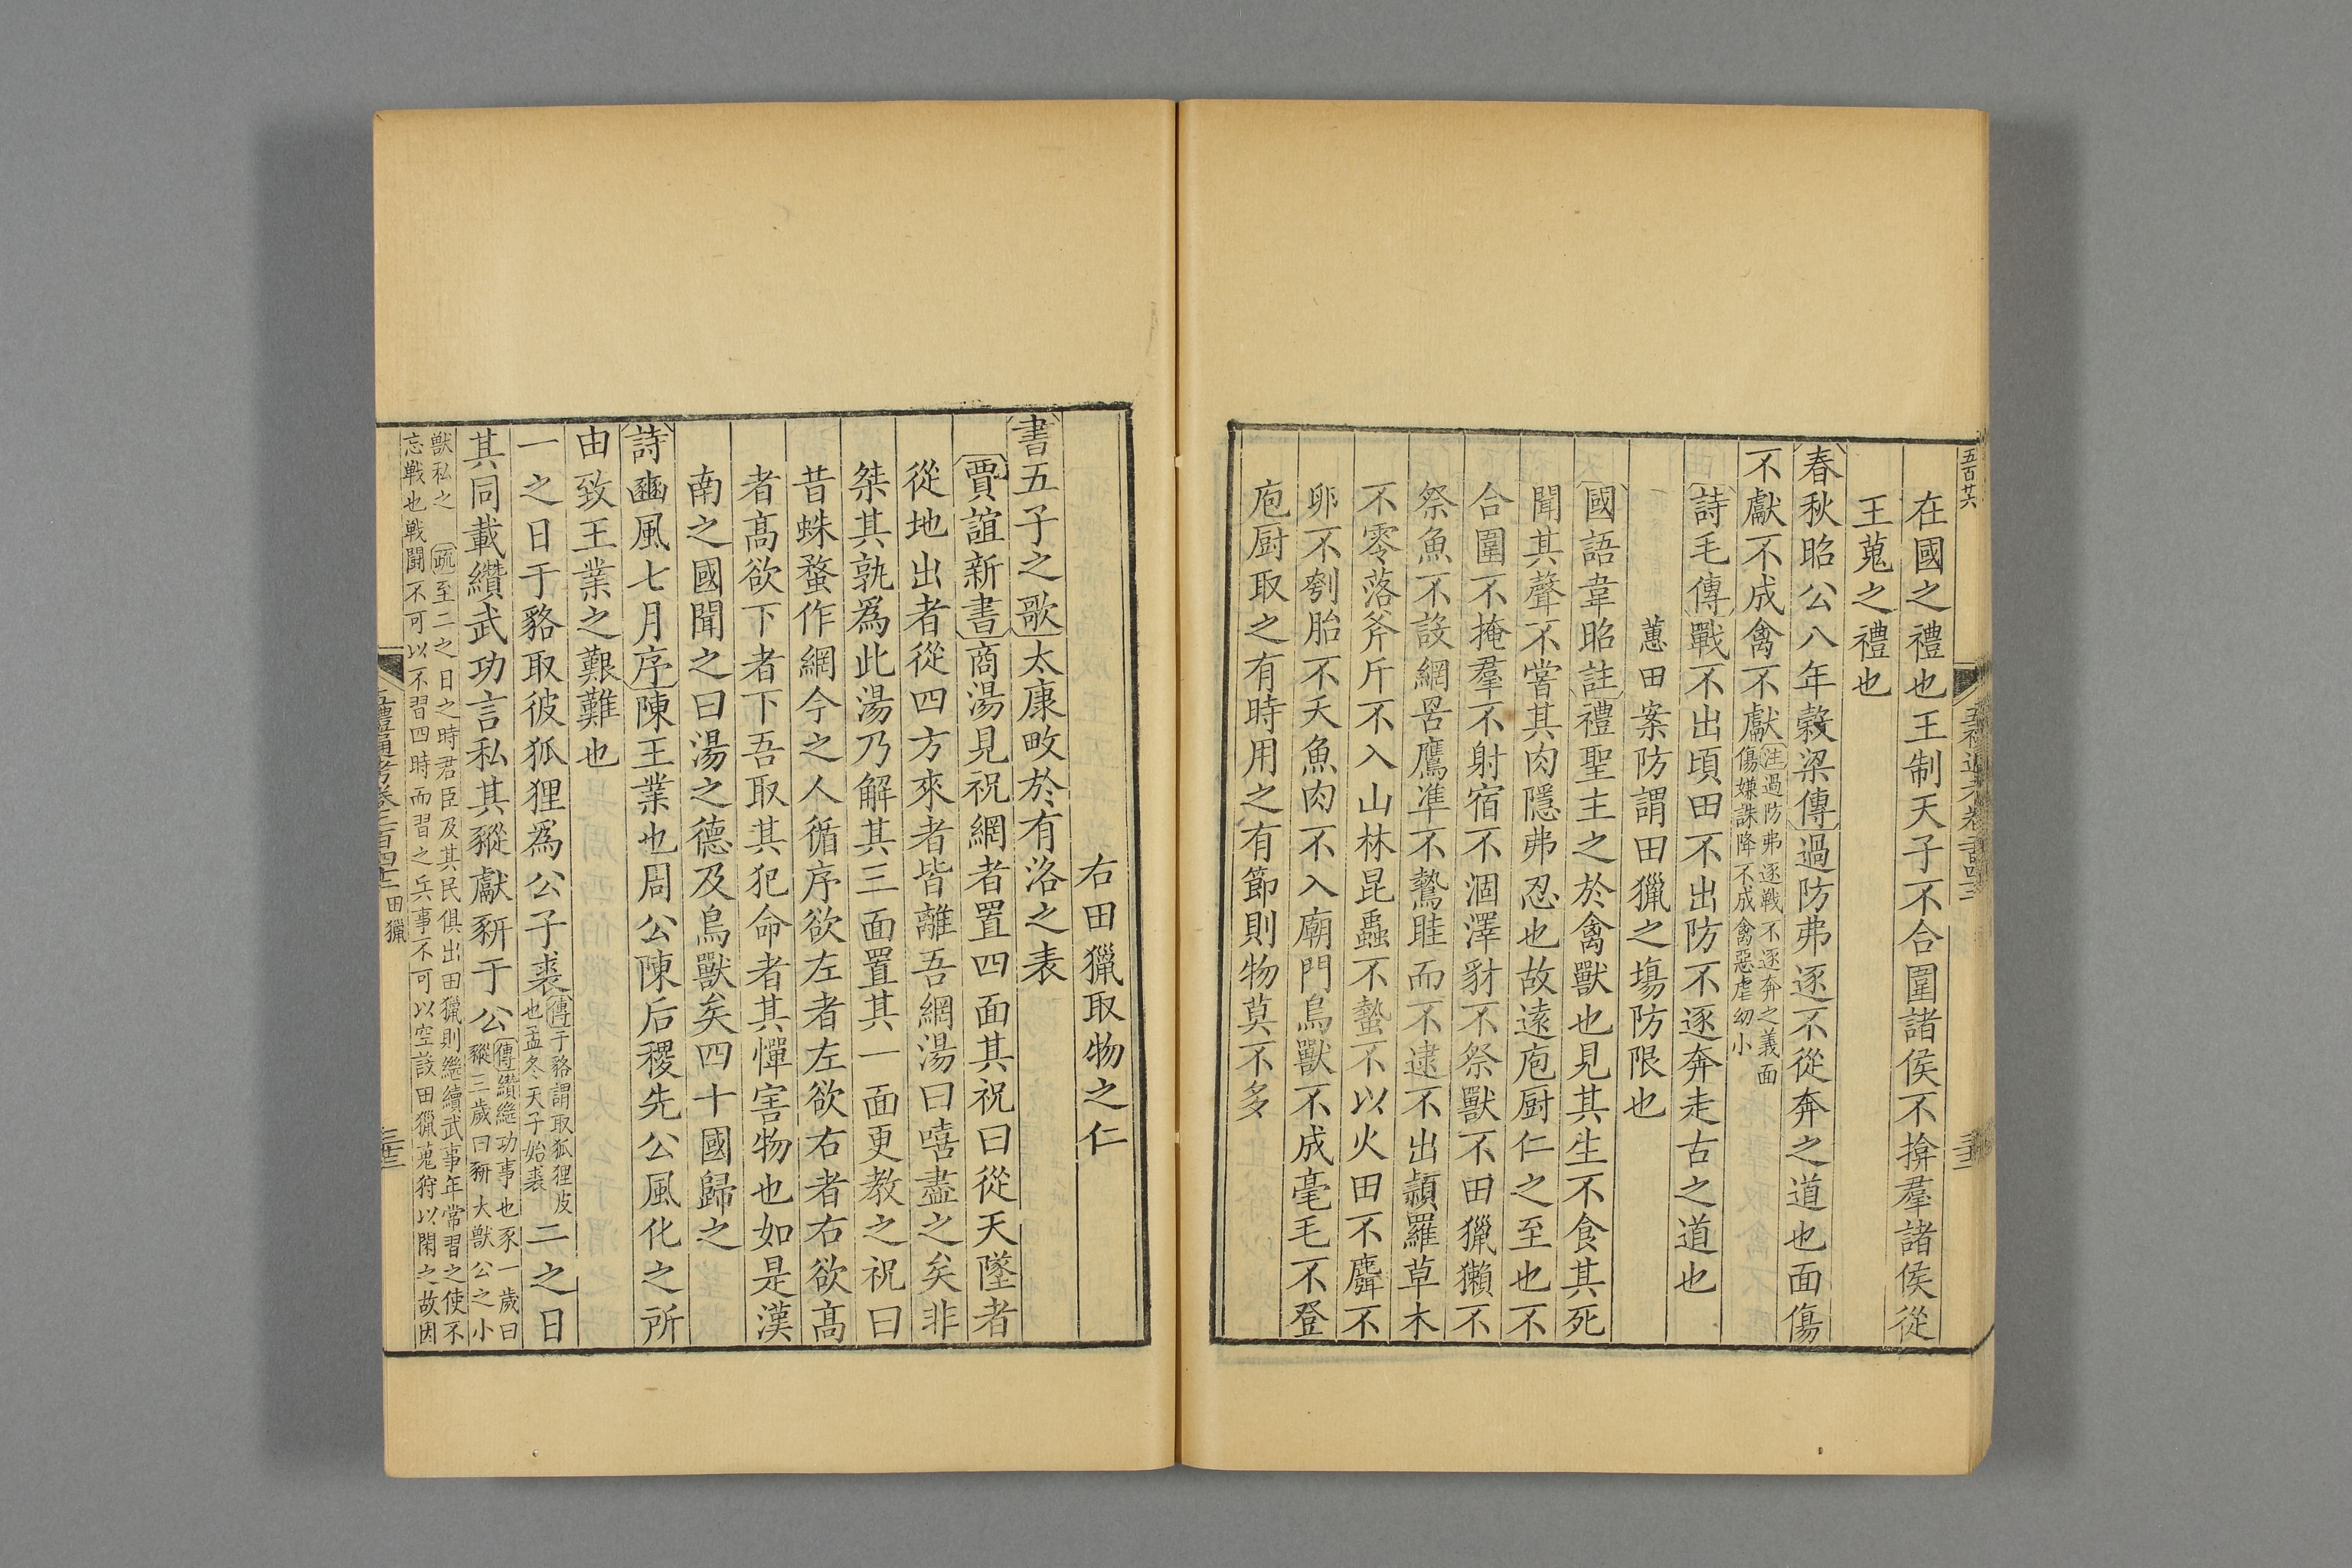 五百廿六
在國之禮也王制天子不合圍諸侯不揜羣諸侯從
王蒐之禮也
春秋昭公八年穀梁傳過防弗逐不從奔之道也面傷
不獻不成禽不獻注過防弗逐戰不逐奔之義面
傷嫌誅降不成禽惡虐幼小
詩毛傳戰不出頃田不出防不逐奔走古之道也
蕙田案防謂田獵之塲防限也
國語韋昭註禮聖主之於禽獸也見其生不食其死
聞其聲不嘗其肉隱弗忍也故遠庖厨仁之至也不
合圍不掩羣不射宿不涸澤豺不祭獸不田獵獺不
祭魚不設網罟鷹凖不鷙眭而不逮不出頴羅草木
不零落斧斤不入山林昆蟲不蟄不以火田不麛不
卵不刳胎不夭魚肉不入廟門鳥獸不成毫毛不登
庖厨取之有時用之有節則物莫不多
右田獵取物之仁
書五子之歌太康畋於有洛之表
賈誼新書商湯見祝網者置四面其祝曰從天墜者
從地出者從四方來者皆離吾網湯曰嘻盡之矣非
桀其孰爲此湯乃解其三面置其一面更教之祝曰
昔蛛蝥作網今之人循序欲左者左欲右者右欲髙
者髙欲下者下吾取其犯命者其憚害物也如是漢
南之國聞之曰湯之德及鳥獸矣四十國歸之
詩豳風七月序陳王業也周公陳后稷先公風化之所
由致王業之艱難也
一之日于貉取彼狐狸爲公子裘傳于貉謂取狐狸皮
也孟冬天子始裘二之日
其同載纘武功言私其豵獻豜于公傳纘繼功事也豕一歲曰
豵三歲曰豜大獸公之小
獸私之疏至二之日之時君臣及其民俱出田獵則繼續武事年常習之使不
忘戰也戰鬭不可以不習四時而習之兵事不可以空設田獵蒐狩以閑之故因
五禮通考卷二百四十二田獵